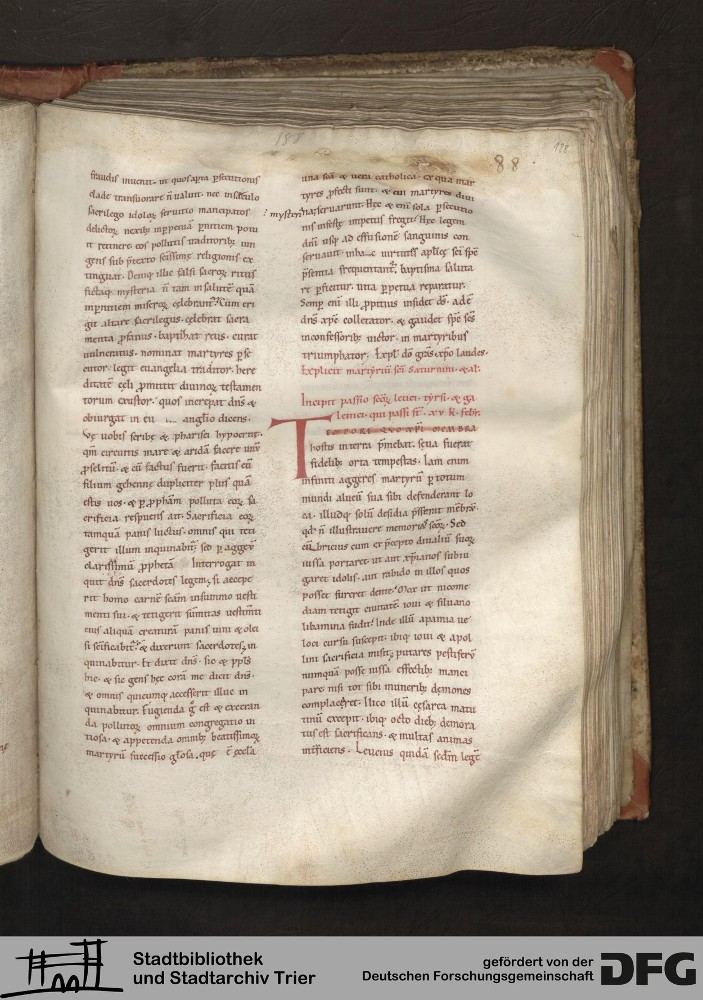 188
88.
118
fraudis inuenit. in quos apta psecutionis
clade transuorare n ualuit. nec in sæculo
sacrilego idolor seruitio mancipatos
delictor nexib; inppetuā pniciem potu
it retinere eos pollutis traditorib; iun
gens sub ptexto scissime religionis ex
tinguat. Deniq; ille falsi sacror ritus
fictaq; mysteria n tam in salutē quā
inpniciem miseror celebrant; Cum eri
git altare sacrilegus. celebrat sacra
menta pfanus. baptizat reus. curat
uulneratus. nominat martyres pse
cutor. legit euangelia traditor. here
ditatē celi pmittit diuinor testamen
torum exustor. quos increpat dns &
obiurgat in eu anglio dicens.
Ve uobis scribe & pharisei hypocrite.
qm circuitis mare & aridā facere unū
pselitū. & cū factus fuerit. facitis eū
filium gehenne dupliciter plus quā
estis uos. & p pphetam polluta eor sa
crificia respuens ait. Sacrificia eor
tamquā panis luctus. omnis qui teti
gerit illum inquinabit; sed p aggeū
clarissimū pphetā Interrogat in
quit dns sacerdotes legem; si accepe
rit homo carnē scam in summo uesti
menti sui. & tetigerit sūmitas uestimti
eius aliquā creaturā panis uini & olei
si scificabit; & dixerunt sacerdotes; in
quinabitur. Et dixit dns. sic & ppls
hic. & sic gens hec corā me dicit dns.
& omnis quicumq; accesserit illuc in
quinabitur. Fugienda g est & execran
da pollutor omnium congregatio ui
tiosa. & appetenda omnib; beatissimor
martyrū successio glosa. que ē eccla
una sca & uera catholica. ex qua mar
tyres pfecti sunt. & cui martyres diui
mysteria seruarunt. Hec & eni sola psecutio
nis infeste impetus fregit. Hec legem
dni usq; ad effusionē sanguinis con
seruauit. in hac uirtutes aplice sci spe
psentia frequentant. baptisma saluta
re pficitur. uita ppetua reparatur.
Semp eni illi ppitius insidet ds. adē
dns xpc colletatur. & gaudet spc scs
in confessorib; uictor. in martyribus
triumphator. Expl do gras. xpo laudes.
Explicit martyriū sci Saturnini. & al.
Incipit passio scor leuci. tyrsi. & ga
lenici. qui passi st. xv k. febr.
TEMPORE QUO XPI MEMBRA
hostis in terra pmebat. seua fuerat
fidelib; orta tempestas. Iam enim
infiniti aggeres martyrū p totum
mundi alueū sua sibi defenderant lo
ca. illudq; solū desidia psserit mēbrū.
qd n illustrauere memorie scor. Sed
cū bricius cum ex pcepto diualiū suor
iussa portaret ut aut xpianos subiu
garet idolis. aut rabido in illos quos
posset fureret dente. Mox ut nicome
diam tetigit ciuitatē. ioui & siluano
libamina fudit. Inde illū apamia ue
loci cursu suscepit. ibiq; ioui & apol
lini sacrificia misit; putares pestiferū
numquā posse iussa effectib; manci
pare nisi tot sibi munerib; demones
complaceret. Ilico illū cesarea matu
tinū excepit. ibiq; octo dieb; demora
tus est sacrificans. & multas animas
interficiens. Leucius quidā scdm legē
Stadtbibliothek
und Stadtarchiv Trier
gefördert von der
Deutschen Forschungsgemeinschaft
DFG